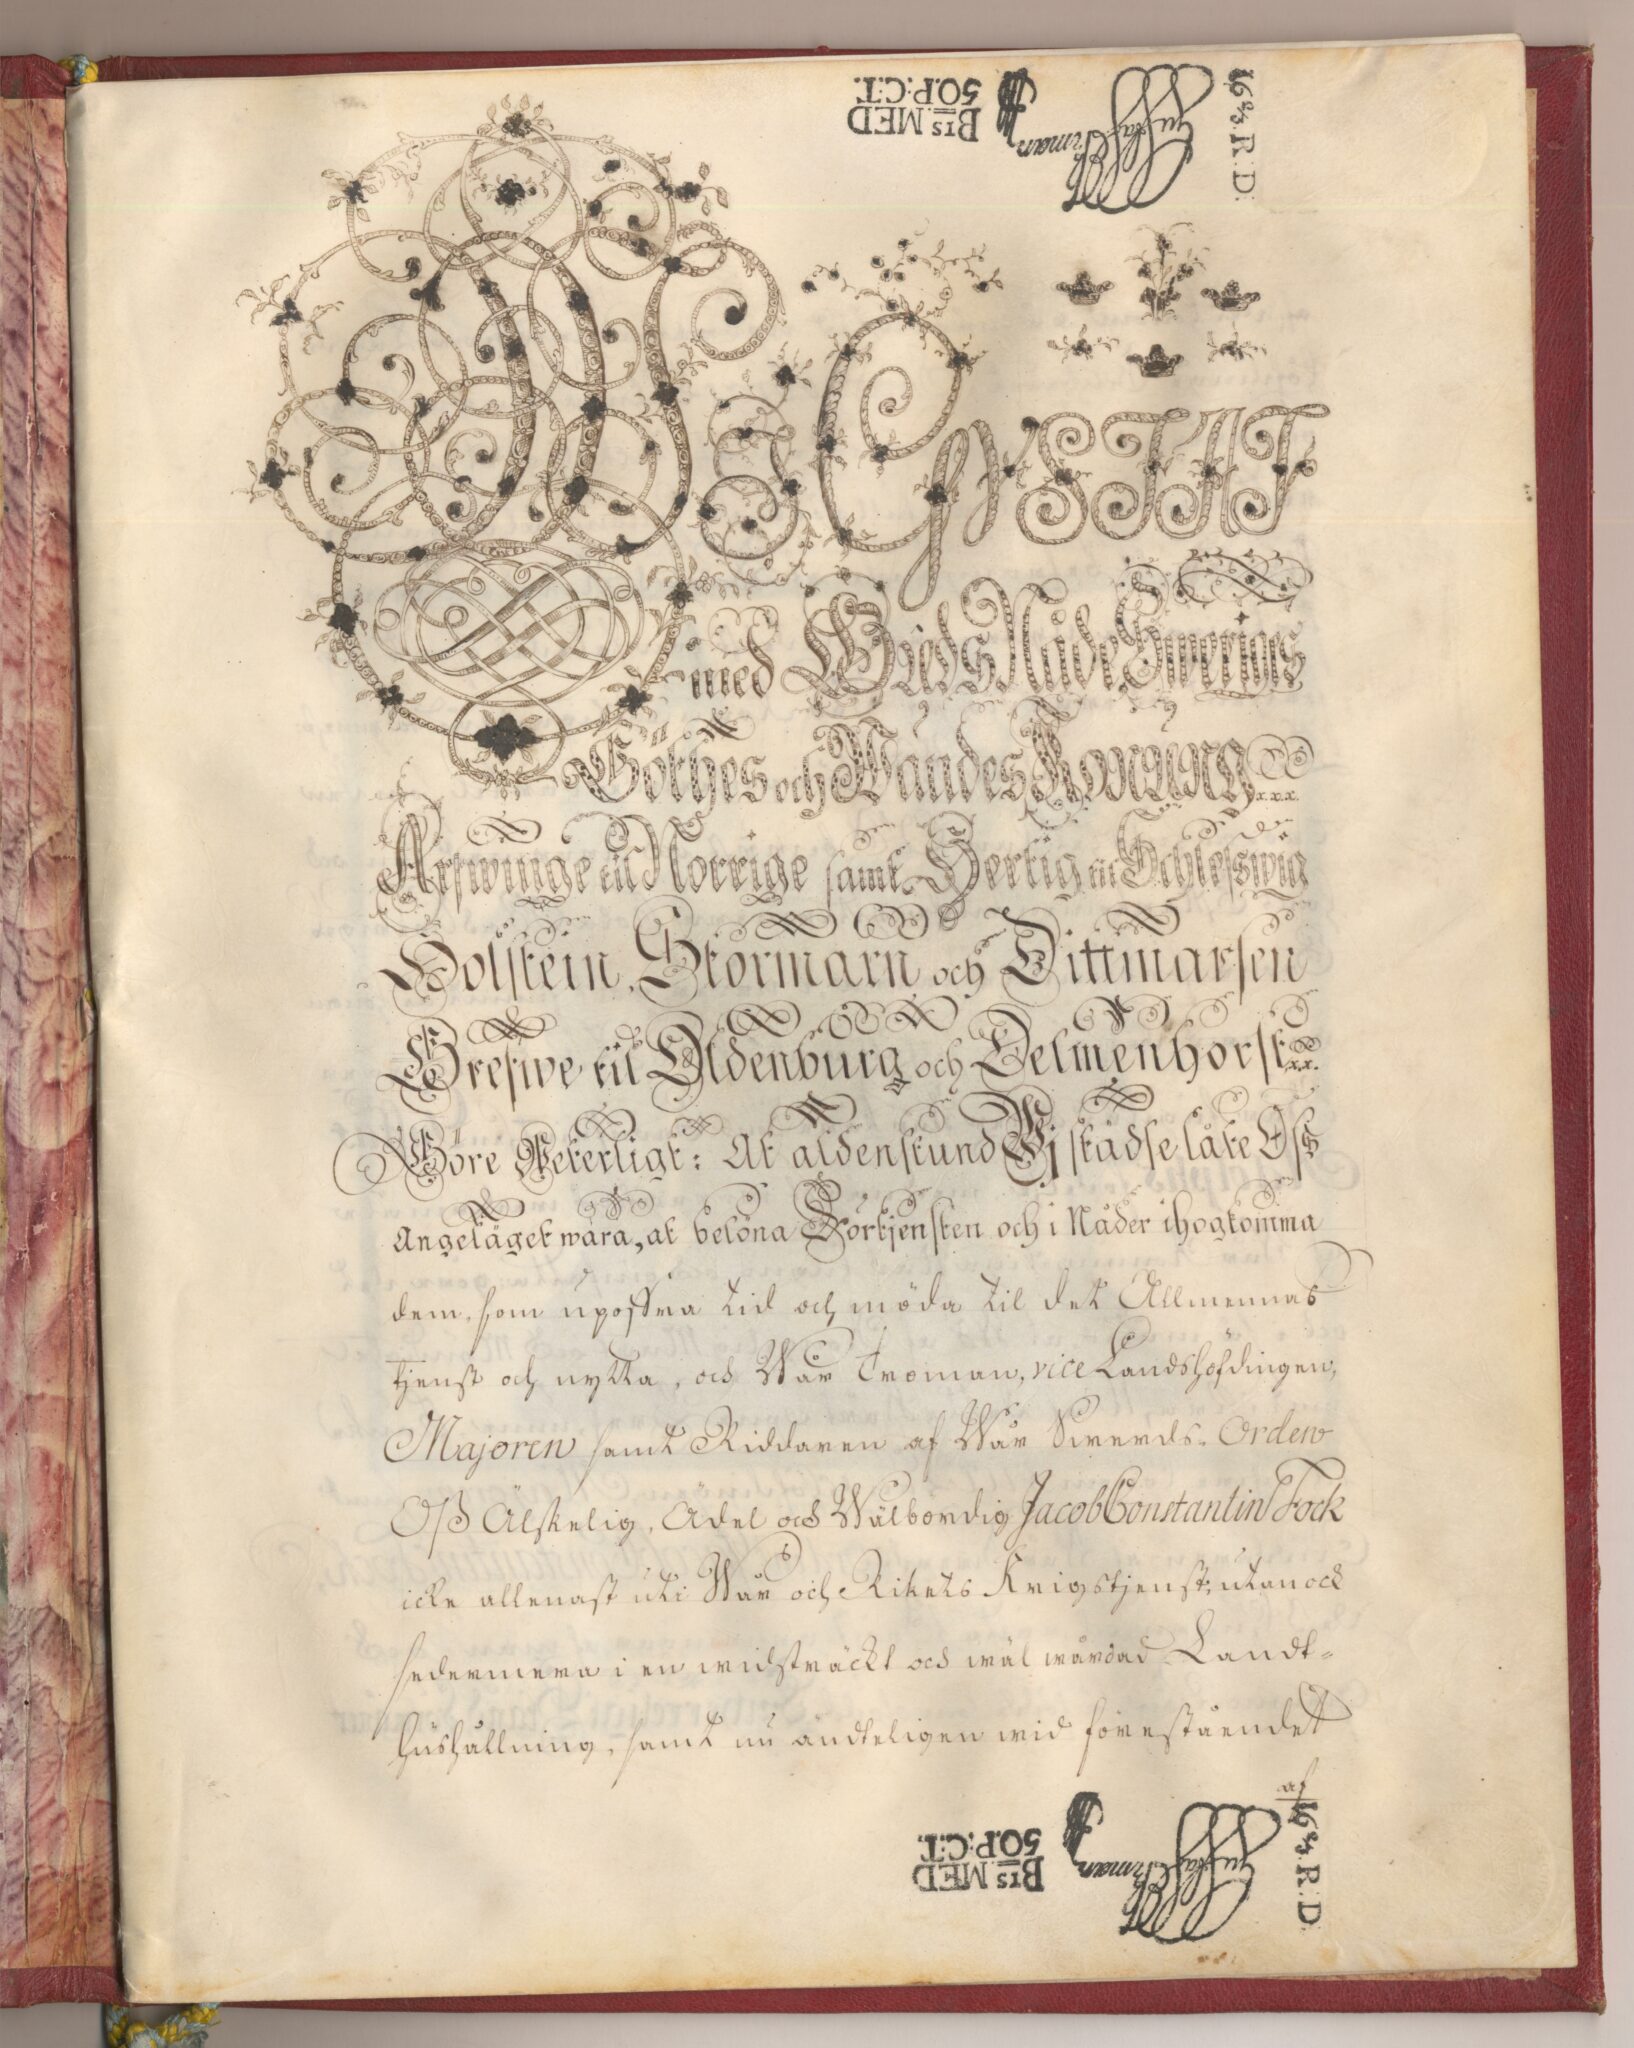 BTS MED
50.P:C:T.
Gustaf Ehrman
16 2/3. R:D:
Wi GUSTAF
med Guds Nåde Sweriges
Göthes och Wändes Konung x.x.x.
Arfwinge til Norrige samt Hertig til Schlesswig
Holstein, Stormarn och Dittmarsen
Grefwe til Oldenburg och Delmenhorst x.x.
Göre Weterligt: At aldenstund Wj städse låte Oss
Angeläget wara, at belöna Förtjensten och i Nåder ihogkomma
dem, som upoffra tid och möda til det Allmennas
tjenst och nytta, och Wår Troman, vice Landshöfdingen,
Majoren samt Riddaren af Wår Swerds-Orden
Oss Älskelig, Ädel och Wälbördig Jacob Constantin Fock
icke allenast uti Wår och Rikets Krigstjenst, utan ock
sedermera i en widsträckt och wäl wårdad Landt-
hushållning, samt nu ändteligen wid förestäendet
af
BTS MED
50.P:C:T.
Gustaf Ehrman
16 2/3. R:D: